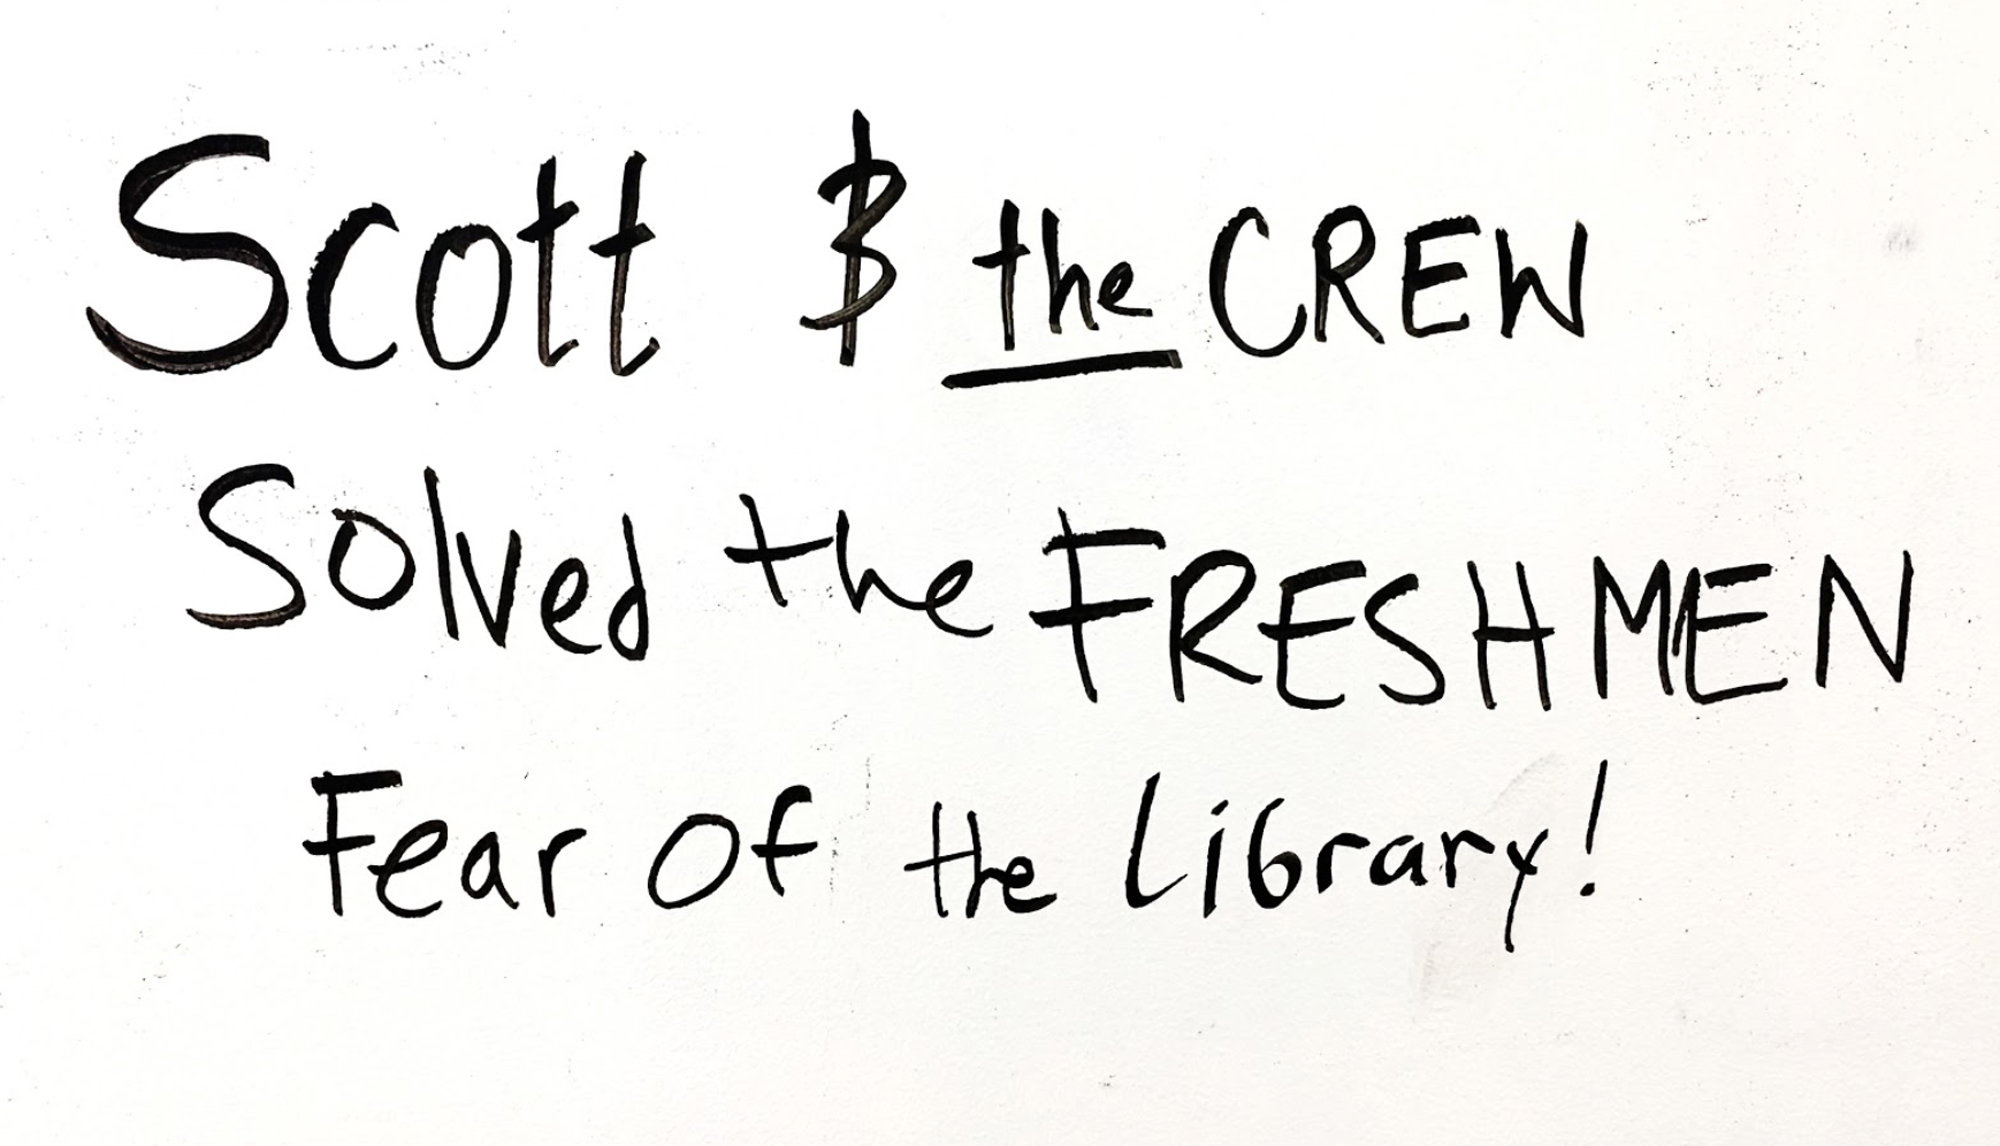 Scott & the CREW
Solved the FRESHMEN
Fear of the Library!